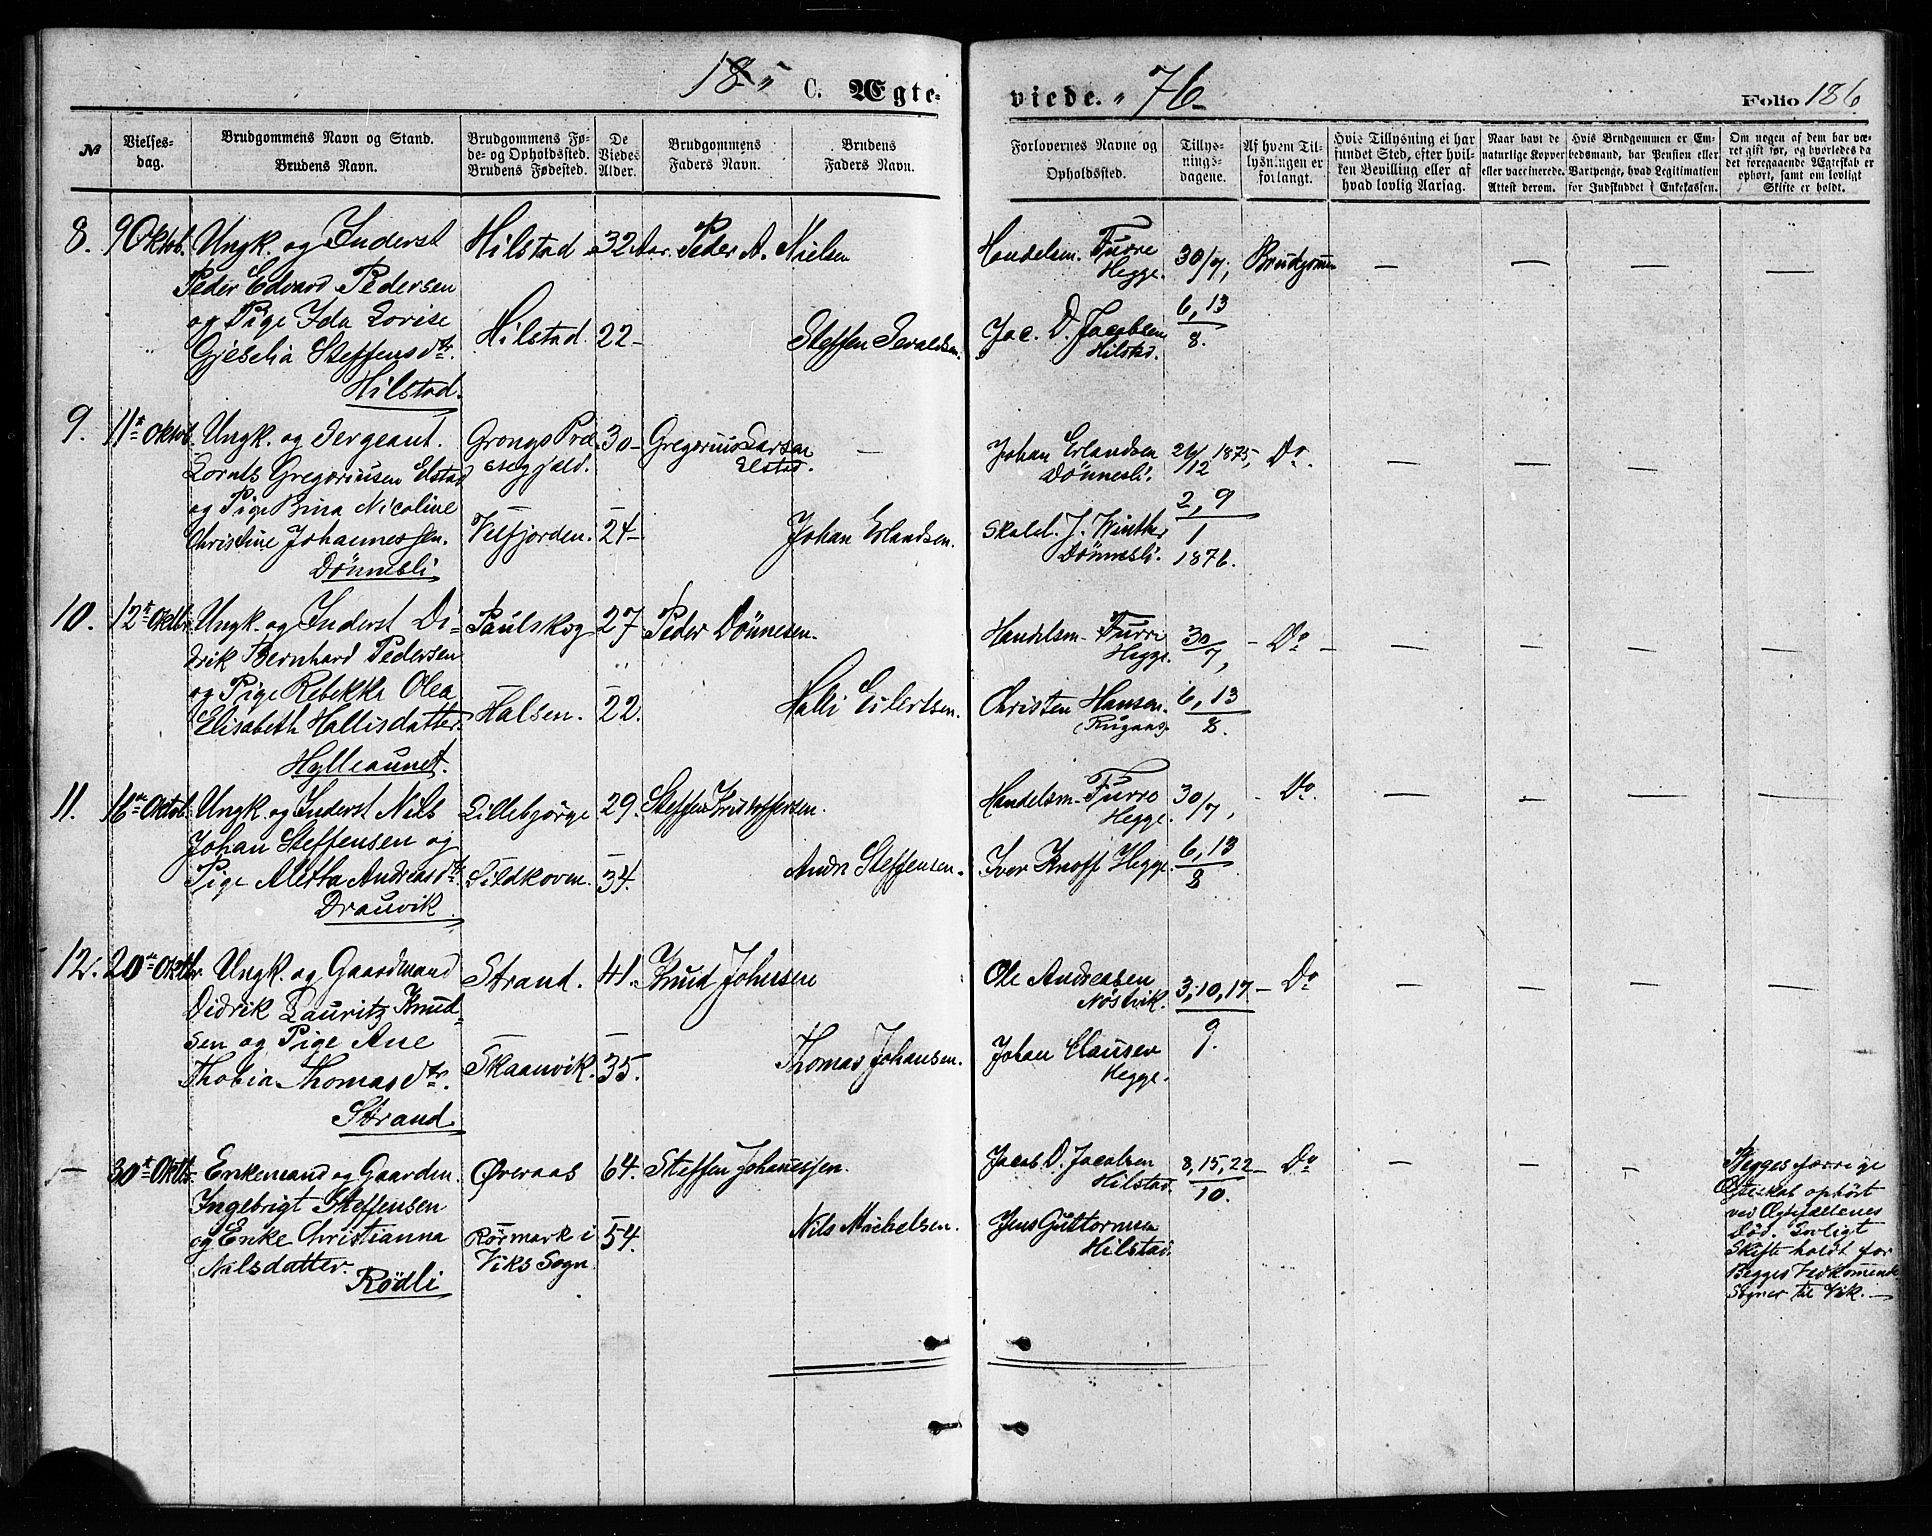 18 " C. Ægte-
viede. " 76
Folio 186
№
Vielses-
dag.
Brudgommens Navn og Stand.
Brudens Navn.
Brudgommens Fø-
de- og Opholdssted.
Brudens Fødested.
De
Viedes
Alder.
Brudgommens
Faders Navn.
Brudens
Faders Navn.
Forlovernes Navne og
Opholdssted.
Tillys-
nings-
dagene.
Af hvem Til-
lysningen er
forlangt.
Hvis Tillysning ei har
fundet Sted, efter hvil-
ken Bevilling eller af
hvad lovlig Aarsag.
Naar havt de
naturlige Kopper
eller vaccinerede.
Attest derom.
Hvis Brudgommen er Em-
bedsmand, har Pension eller
Vartpenge, hvad Legitimation
for Indskuddet i Enkekassen.
Om nogen af dem har væ-
ret gift før, og hvorledes da
det foregaaende Ægteskab er
ophørt, samt om lovligt
Skifte er holdt.
8. 9 Oktob. Ungk. og Inderst Hilstad 32 Aar. Peder A. Nielsen Handelsm. Furre 30/7, Brudgommen — — — —
Peder Edvard Pedersen Hegge.
og Pige Ida Lovise Hilstad 22 - Steffen Sevaldsen. Jac. D. Jacobsen 6, 13
Gjeselia Steffensdtr. Hilstad. 8.
Hilstad.
9. 11te Oktob. Ungk. og Sergeant. Grongs Præ- 30 - Gregorius Larsen — Johan Erlandsen 26/12 1875, Do. — — — —
Lornts Gregoriusen Elstad stegjæld. Elstad. Dönnesli.
og Pige Bina Nicoline 2, 9
Christine Johannessen. Velfjorden. 24 - Johan Erlandsen. Skolel. J. Winther 1
Dönnesli Dönnesli. 1876.
10. 12te Oktbr. Ungk. og Inderst Di- Paulskog 27 Peder Dönnesen. Handelsm. Furre 30/7, - Do - — — — —
drik Bernhard Pedersen " Hegge.
og Pige Rebekka Olea
Elisabeth Hallisdatter. Halsen. 22. Halli Eilertsen. Christen Hansen 6, 13
Hylleaunet. 8.
11. 16de Oktob. Ungk. og Inderst Nils Lillebjörge 29. Steffen Kristoffersen. Handelsm. Furre 30/7, - Do. — — — —
Johan Steffensen og Hegge.
Pige Aletta Andreasdtr. Sildkoven. 34. Andr Steffensen. Iver Knoff Hegge. 6, 13
Drauvik. 8
12. 20de Oktbr. Ungk. og Gaardmand Strand. 41. Knud Johnsen Ole Andreasen 3, 10, 17 - Do — — — —
Didrik Lauritz Knud- Nostvik.
sen og Pige Ane 9.
Thobia Thomasdtr. Skaanvik. 35. Thomas Johansen. Johan Clausen
Strand Hegge.
— 30te Oktb. Enkemand og Gaardm. Øveraas 64. Steffen Johannessen. Jacob D. Jacobsen 8, 15, 22 - Do — — — Begges forrige
Ingebrigt Steffensen Hilstad. 10. Ægteskab ophört
og Enke Christianna Rörmark i 54. Nils Michelsen. Jens Guttormsen ved Ægtefællenes
Nilsdatter. Viks Sogn. Hilstad. Död. Lovligt
Rödli Skifte holdt for
Begges Vedkommende
Sogner til Vik. —